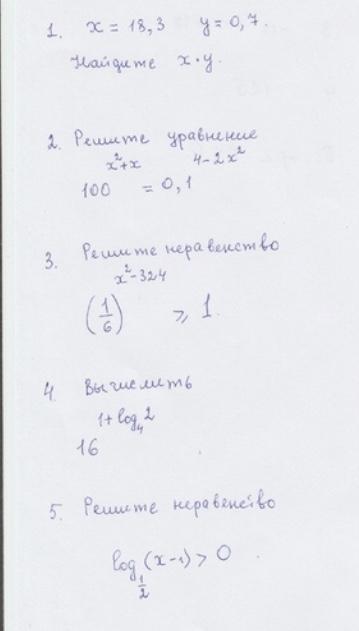 1. x = 18,3 y = 0,7.
Найдите x·y.
2. Решите уравнение
100^(x²+x) = 0,1^(4-2x²)
3. Решите неравенство
(1/6)^(x²-324) ⩾ 1.
4. Вычислить
16^(1+log₄2)
5. Решите неравенство
log_(1/2) (x-1) > 0.